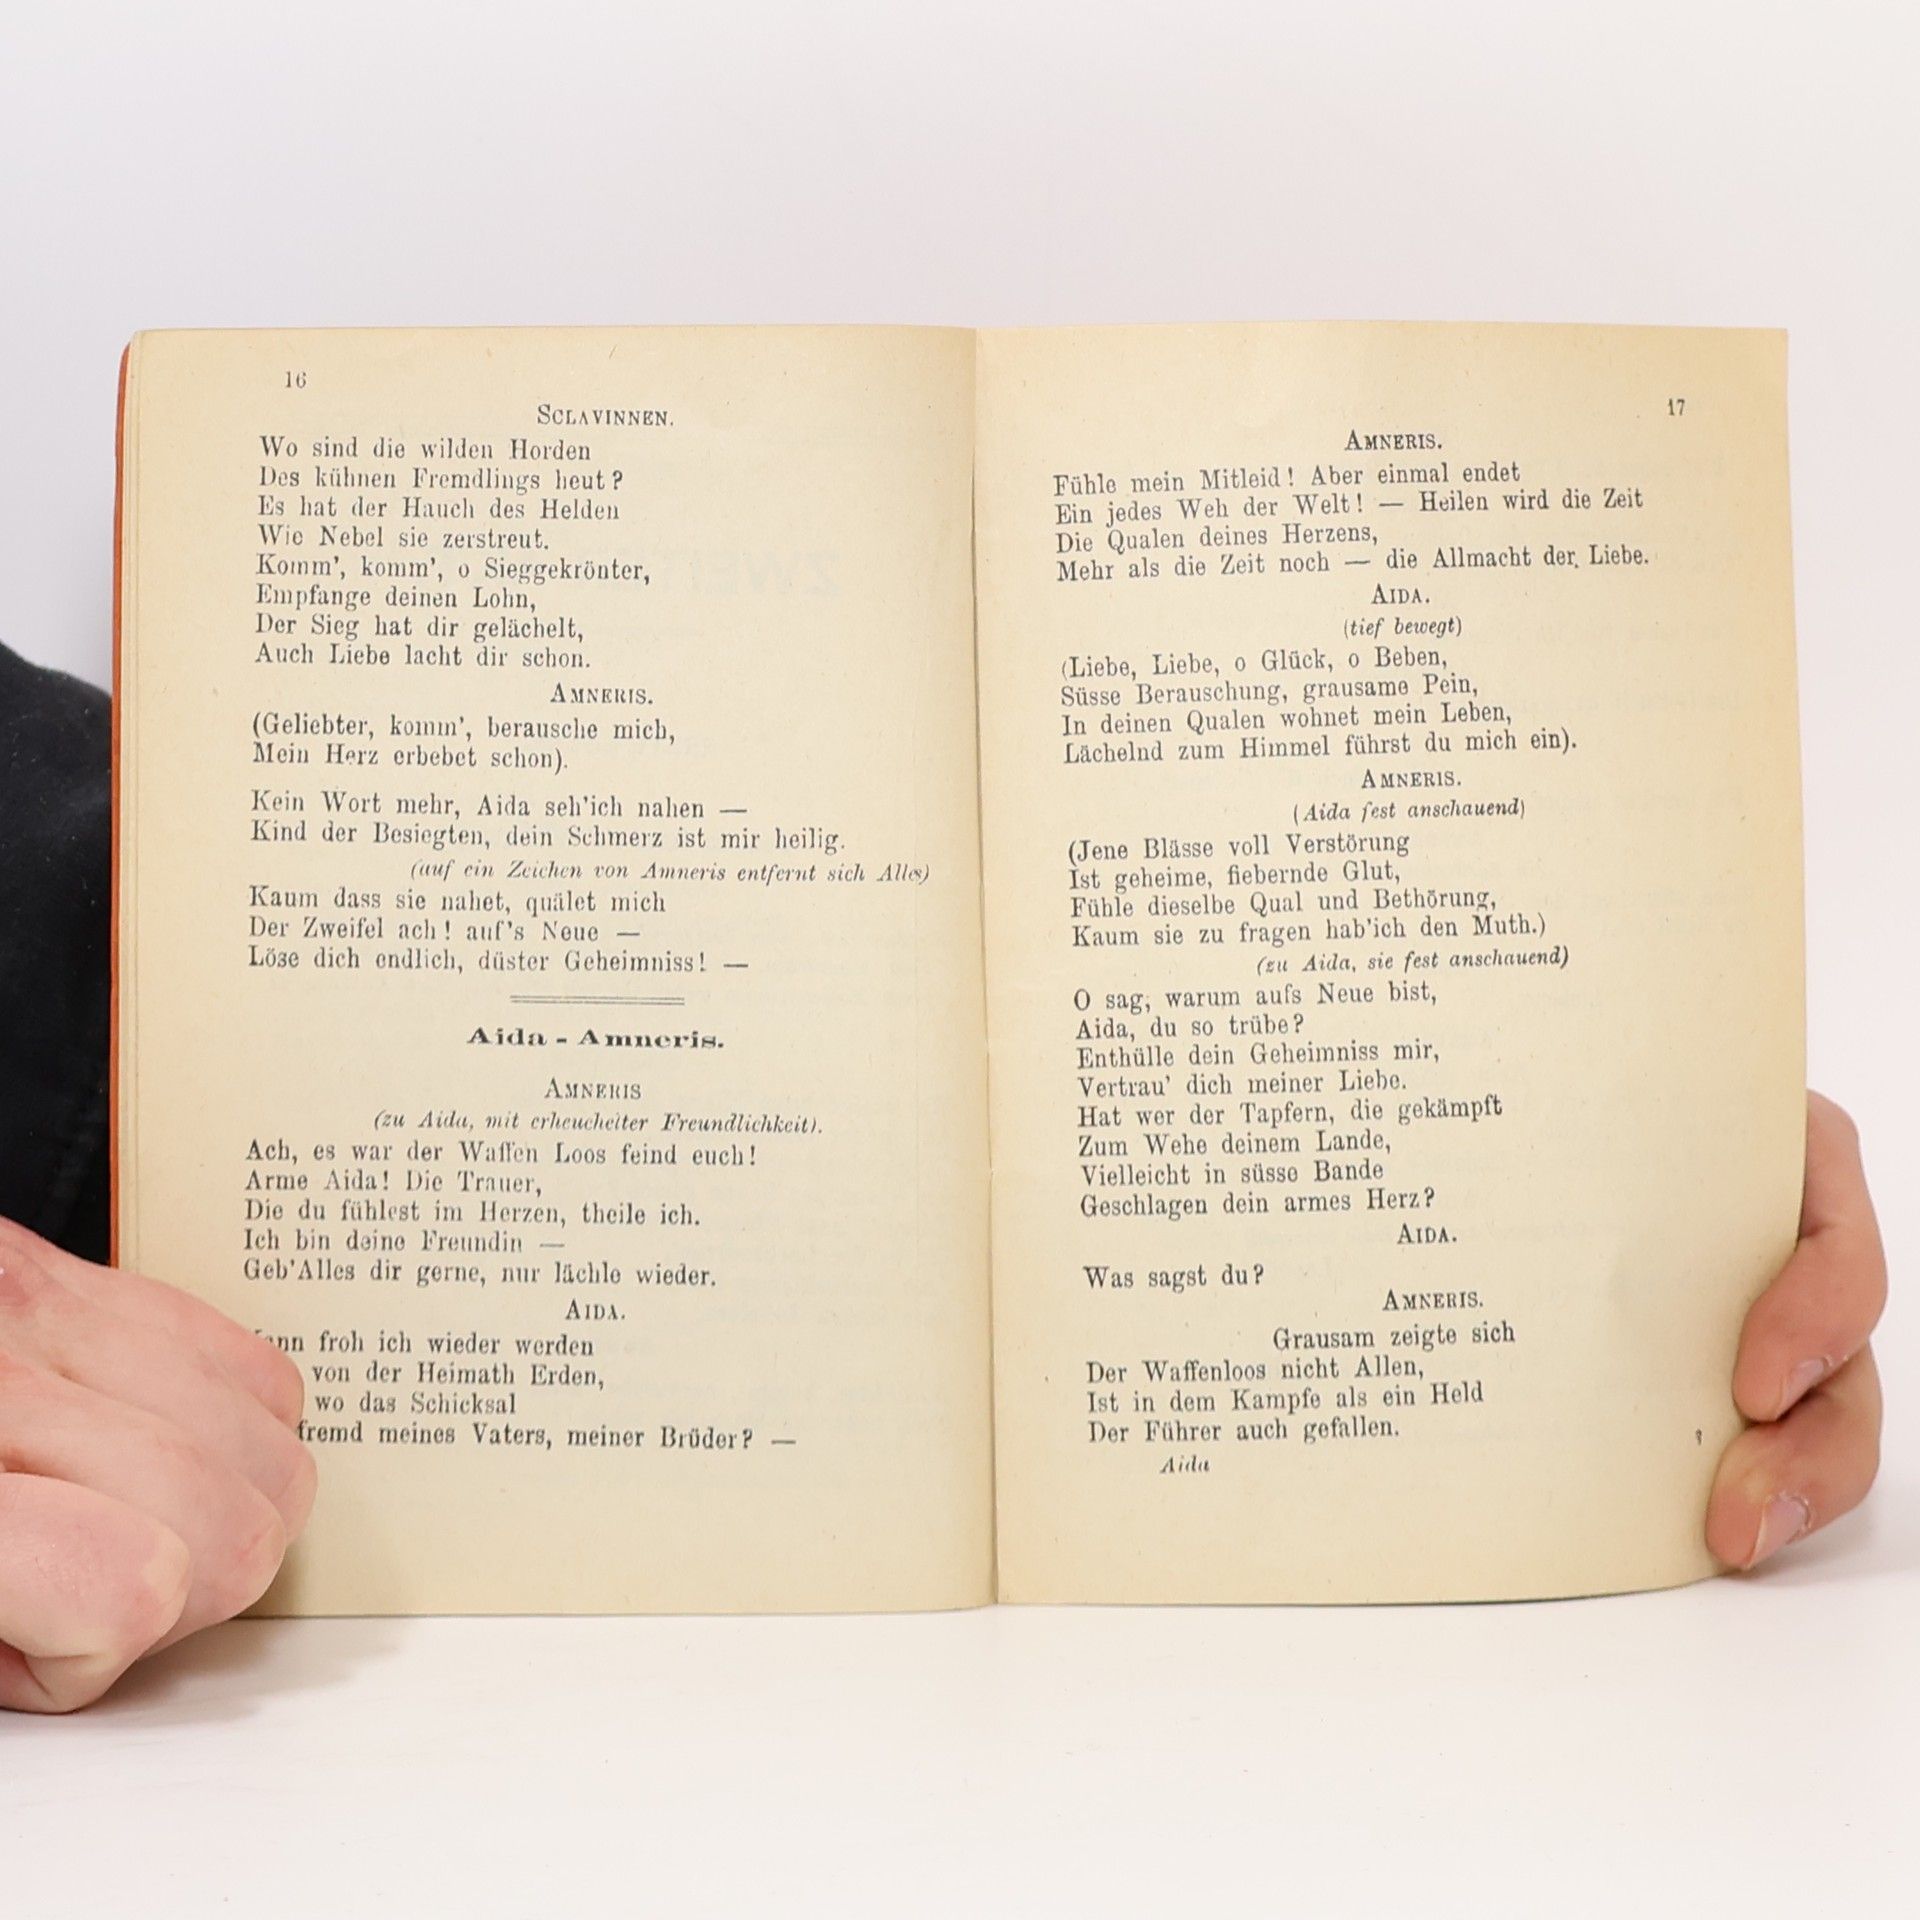 16
SCLAVINNEN.
Wo sind die wilden Horden
Des kühnen Fremdlings heut?
Es hat der Hauch des Helden
Wie Nebel sie zerstreut.
Komm', komm', o Sieggekrönter,
Empfange deinen Lohn,
Der Sieg hat dir gelächelt,
Auch Liebe lacht dir schon.
AMNERIS.
(Geliebter, komm', berausche mich,
Mein Herz erbebet schon).
Kein Wort mehr, Aida seh'ich nahen —
Kind der Besiegten, dein Schmerz ist mir heilig.
(auf ein Zeichen von Amneris entfernt sich Alles)
Kaum dass sie nahet, quälet mich
Der Zweifel ach! auf's Neue —
Löse dich endlich, düster Geheimniss! —
Aida - Amneris.
AMNERIS
(zu Aida, mit erheuchelter Freundlichkeit).
Ach, es war der Waffen Loos feind euch!
Arme Aida! Die Trauer,
Die du fühlest im Herzen, theile ich.
Ich bin deine Freundin —
Geb'Alles dir gerne, nur lächle wieder.
AIDA.
froh ich wieder werden
von der Heimath Erden,
wo das Schicksal
fremd meines Vaters, meiner Brüder? —
17
AMNERIS.
Fühle mein Mitleid! Aber einmal endet
Ein jedes Weh der Welt! — Heilen wird die Zeit
Die Qualen deines Herzens,
Mehr als die Zeit noch — die Allmacht der Liebe.
AIDA.
(tief bewegt)
(Liebe, Liebe, o Glück, o Beben,
Süsse Berauschung, grausame Pein,
In deinen Qualen wohnet mein Leben,
Lächelnd zum Himmel führst du mich ein).
AMNERIS.
(Aida fest anschauend)
(Jene Blässe voll Verstörung
Ist geheime, fiebernde Glut,
Fühle dieselbe Qual und Bethörung,
Kaum sie zu fragen hab'ich den Muth.)
(zu Aida, sie fest anschauend)
O sag, warum aufs Neue bist,
Aida, du so trübe?
Enthülle dein Geheimniss mir,
Vertrau' dich meiner Liebe.
Hat wer der Tapfern, die gekämpft
Zum Wehe deinem Lande,
Vielleicht in süsse Bande
Geschlagen dein armes Herz?
AIDA.
Was sagst du?
AMNERIS.
Grausam zeigte sich
Der Waffenloos nicht Allen,
Ist in dem Kampfe als ein Held
Der Führer auch gefallen.
Aida